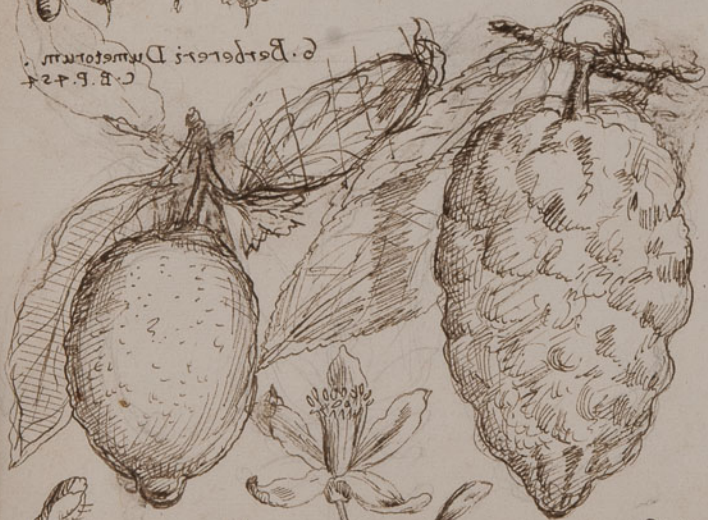 6. Berbereri Dumetorum.
C.B.P.454